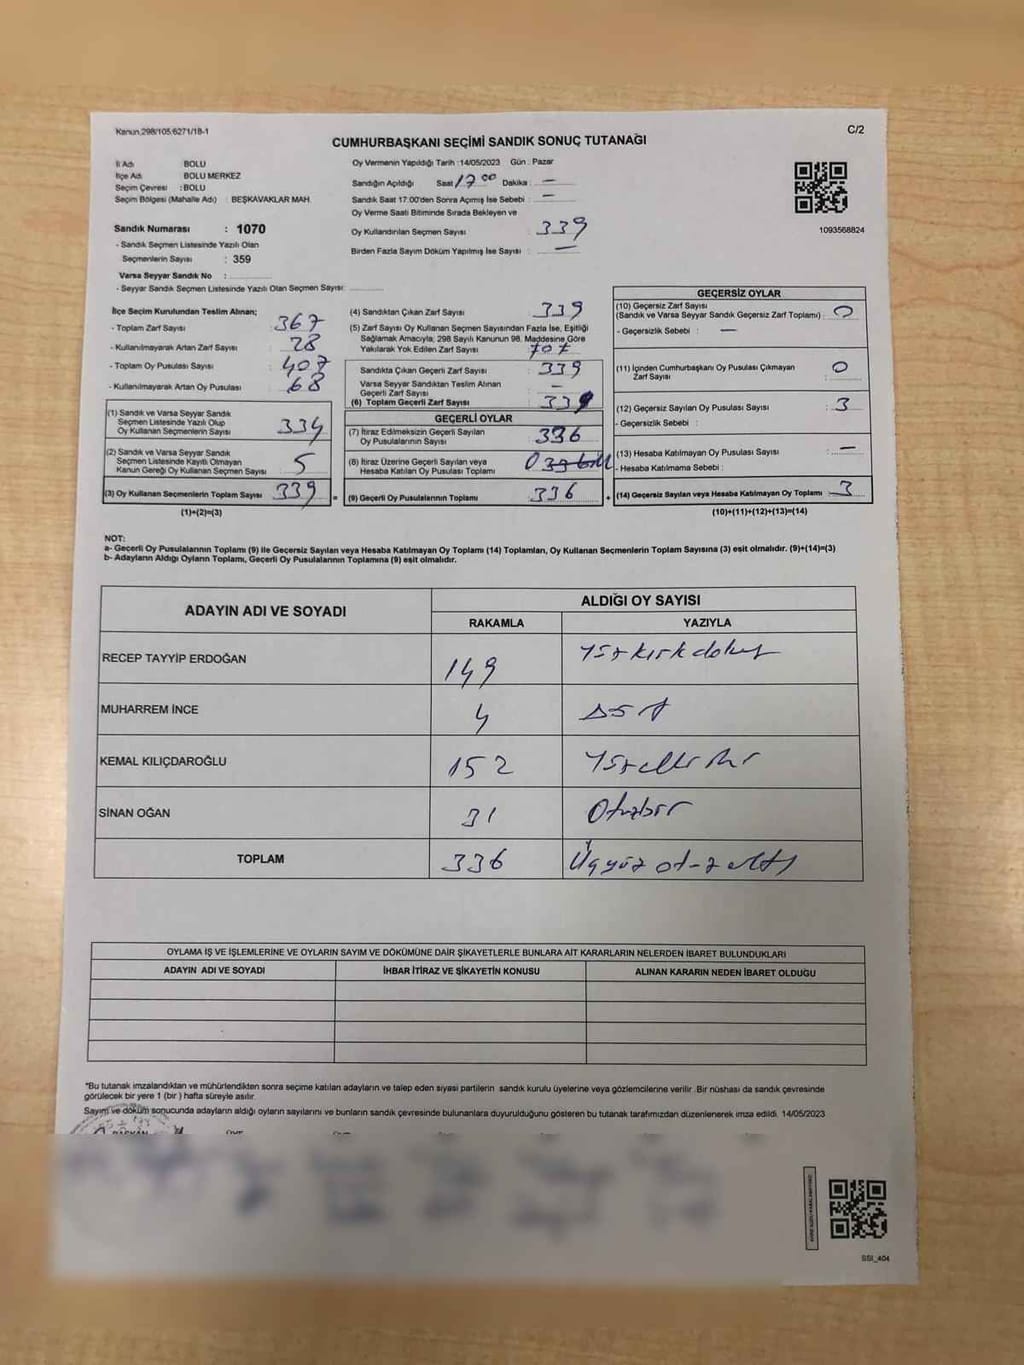 Kanun:298/105,6271/18-1
C/2
CUMHURBAŞKANI SEÇİMİ SANDIK SONUÇ TUTANAĞI
İl Adı BOLU
İlçe Adı BOLU MERKEZ
Seçim Çevresi : BOLU
Seçim Bölgesi (Mahalle Adı) : BEŞKAVAKLAR MAH.
Sandık Numarası : 1070
- Sandık Seçmen Listesinde Yazılı Olan
Seçmenlerin Sayısı : 359
Varsa Seyyar Sandık No :
- Seyyar Sandık Seçmen Listesinde Yazılı Olan Seçmen Sayısı:
Oy Vermenin Yapıldığı Tarih :14/05/2023 Gün : Pazar
Sandığın Açıldığı Saat 17 00 Dakika : —
Sandık Saat 17:00'den Sonra Açımış İse Sebebi : —
Oy Verme Saati Bitiminde Sırada Bekleyen ve
Oy Kullandırılan Seçmen Sayısı : 339
Birden Fazla Sayım Döküm Yapılmış İse Sayısı : —
1093568824
İlçe Seçim Kurulundan Teslim Alınan;
- Toplam Zarf Sayısı : 367
- Kullanılmayarak Artan Zarf Sayısı : 28
- Toplam Oy Pusulası Sayısı : 407
- Kullanılmayarak Artan Oy Pusulası : 68
(1) Sandık ve Varsa Seyyar Sandık
Seçmen Listesinde Yazılı Olup
Oy Kullanan Seçmenlerin Sayısı : 334
(2) Sandık ve Varsa Seyyar Sandık
Seçmen Listesinde Kayıtlı Olmayan
Kanun Gereği Oy Kullanan Seçmen Sayısı : 5
(3) Oy Kullanan Seçmenlerin Toplam Sayısı : 339
(1)+(2)=(3)
(4) Sandıktan Çıkan Zarf Sayısı : 339
(5) Zarf Sayısı Oy Kullanan Seçmen Sayısından Fazla İse, Eşitliği
Sağlamak Amacıyla; 298 Sayılı Kanunun 98. Maddesine Göre
Yakılarak Yok Edilen Zarf Sayısı :
Sandıkta Çıkan Geçerli Zarf Sayısı : 339
Varsa Seyyar Sandıktan Teslim Alınan
Geçerli Zarf Sayısı : —
(6) Toplam Geçerli Zarf Sayısı : 339
GEÇERLİ OYLAR
(7) İtiraz Edilmeksizin Geçerli Sayılan
Oy Pusulalarının Sayısı : 336
(8) İtiraz Üzerine Geçerli Sayılan veya
Hesaba Katılan Oy Pusulası Toplamı : 0
(9) Geçerli Oy Pusulalarının Toplamı : 336
GEÇERSİZ OYLAR
(10) Geçersiz Zarf Sayısı
(Sandık ve Varsa Seyyar Sandık Geçersiz Zarf Toplamı) : 0
- Geçersizlik Sebebi : —
(11) İçinden Cumhurbaşkanı Oy Pusulası Çıkmayan
Zarf Sayısı : 0
(12) Geçersiz Sayılan Oy Pusulası Sayısı : 3
- Geçersizlik Sebebi :
(13) Hesaba Katılmayan Oy Pusulası Sayısı : —
- Hesaba Katılmama Sebebi :
(14) Geçersiz Sayılan veya Hesaba Katılmayan Oy Toplamı : 3
(10)+(11)+(12)+(13)=(14)
NOT:
a- Geçerli Oy Pusulalarının Toplamı (9) ile Geçersiz Sayılan veya Hesaba Katılmayan Oy Toplamı (14) Toplamları, Oy Kullanan Seçmenlerin Toplam Sayısına (3) eşit olmalıdır. (9)+(14)=(3)
b- Adayların Aldığı Oyların Toplamı, Geçerli Oy Pusulalarının Toplamına (9) eşit olmalıdır.
ADAYIN ADI VE SOYADI ALDIĞI OY SAYISI
RAKAMLA YAZIYLA
RECEP TAYYİP ERDOĞAN 149 Yüzkırkdokuz
MUHARREM İNCE 4 Dört
KEMAL KILIÇDAROĞLU 152 Yüzelliiki
SİNAN OĞAN 31 Otuzbir
TOPLAM 336 Üçyüz otuz altı
OYLAMA İŞ VE İŞLEMLERİNE VE OYLARIN SAYIM VE DÖKÜMÜNE DAİR ŞİKAYETLERLE BUNLARA AİT KARARLARIN NELERDEN İBARET BULUNDUKLARI
ADAYIN ADI VE SOYADI İHBAR İTİRAZ VE ŞİKAYETİN KONUSU ALINAN KARARIN NEDEN İBARET OLDUĞU
*Bu tutanak imzalandıktan ve mühürlendikten sonra seçime katılan adayların ve talep eden siyasi partilerin sandık kurulu üyelerine veya gözlemcilerine verilir .Bir nüshası da sandık çevresinde
görülecek bir yere 1 (bir ) hafta süreyle asılır.
Sayım ve döküm sonucunda adayların aldığı oyların sayılarını ve bunların sandık çevresinde bulunanlara duyurulduğunu gösteren bu tutanak tarafımızdan düzenlenerek imza edildi. 14/05/2023
SSI_404